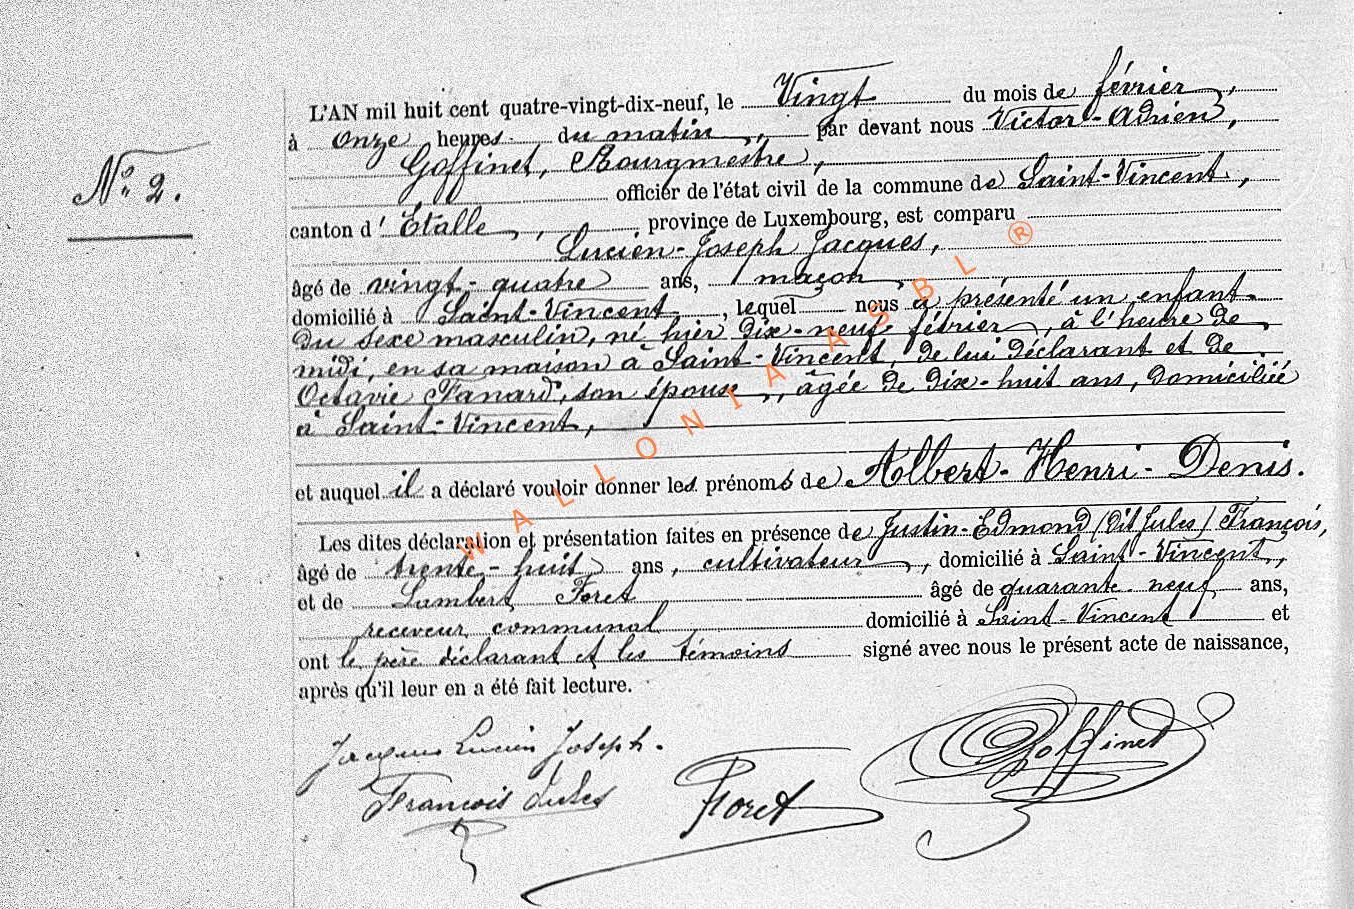 L'AN mil huit cent quatre-vingt-dix-neuf, le Vingt du mois de février,
N° 2.
à onze heures du matin, par devant nous Victor-Adrien,
Goffinet, Bourgmestre,
officier de l'état civil de la commune de Saint-Vincent,
canton d'Etalle, province de Luxembourg, est comparu
Lucien-Joseph Jacques,
âgé de vingt-quatre ans, maçon,
domicilié à Saint-Vincent, lequel nous a présenté un enfant
du sexe masculin, né hier dix-neuf février, à l'heure de
midi, en sa maison à Saint-Vincent, de lui déclarant et de
Octavie Fanard, son épouse, âgée de dix-huit ans, domiciliée
à Saint-Vincent,
et auquel il a déclaré vouloir donner les prénoms de Albert-Henri-Denis.
Les dites déclaration et présentation faites en présence de Justin-Edmond (dit Jules) François,
âgé de trente-huit ans, cultivateur, domicilié à Saint-Vincent,
et de Lambert Foret âgé de quarante-neuf ans,
receveur communal domicilié à Saint-Vincent et
ont le père déclarant et les témoins signé avec nous le présent acte de naissance,
après qu'il leur en a été fait lecture.
Jacques Lucien Joseph.
Goffinet
François Jules
Foret
WALLONIA ASBL ®